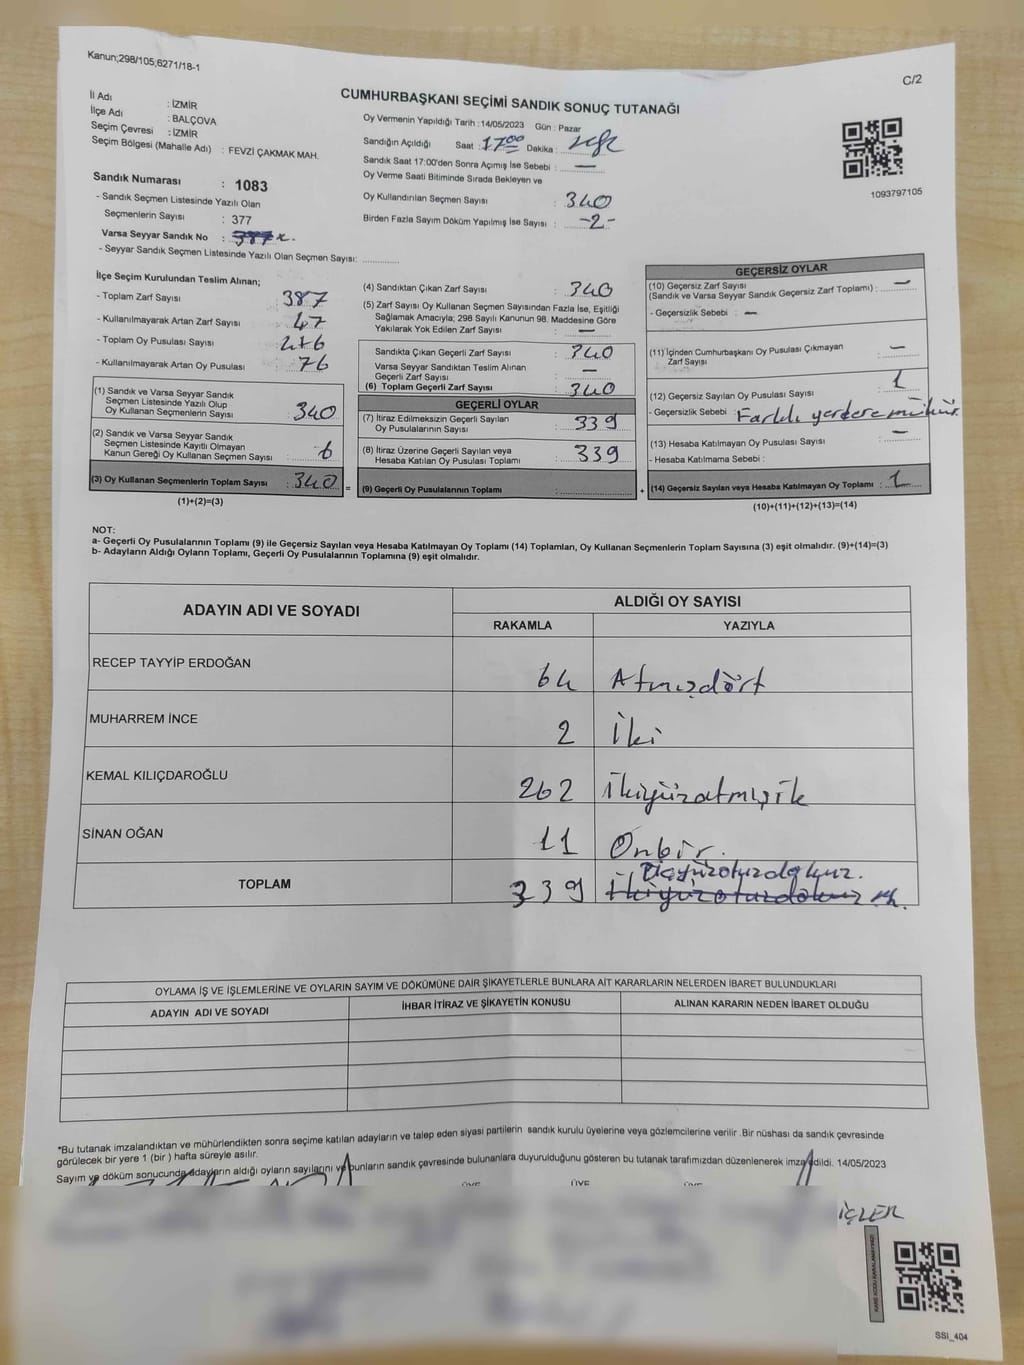 Kanun;298/105;6271/18-1
C/2
CUMHURBAŞKANI SEÇİMİ SANDIK SONUÇ TUTANAĞI
İl Adı : İZMİR
İlçe Adı : BALÇOVA
Seçim Çevresi : İZMİR
Seçim Bölgesi (Mahalle Adı) : FEVZİ ÇAKMAK MAH.
Sandık Numarası : 1083
- Sandık Seçmen Listesinde Yazılı Olan
Seçmenlerin Sayısı : 377
Varsa Seyyar Sandık No :
- Seyyar Sandık Seçmen Listesinde Yazılı Olan Seçmen Sayısı: ............
Oy Vermenin Yapıldığı Tarih :14/05/2023 Gün : Pazar
Sandığın Açıldığı Saat : 17:00 Dakika :
Sandık Saat 17:00'den Sonra Açımış İse Sebebi : —
Oy Verme Saati Bitiminde Sırada Bekleyen ve
Oy Kullandırılan Seçmen Sayısı : 340
Birden Fazla Sayım Döküm Yapılmış İse Sayısı : -2-
1093797105
İlçe Seçim Kurulundan Teslim Alınan;
- Toplam Zarf Sayısı 387
- Kullanılmayarak Artan Zarf Sayısı 47
- Toplam Oy Pusulası Sayısı
- Kullanılmayarak Artan Oy Pusulası 76
(1) Sandık ve Varsa Seyyar Sandık
Seçmen Listesinde Yazılı Olup
Oy Kullanan Seçmenlerin Sayısı : 340
(2) Sandık ve Varsa Seyyar Sandık
Seçmen Listesinde Kayıtlı Olmayan
Kanun Gereği Oy Kullanan Seçmen Sayısı :
(3) Oy Kullanan Seçmenlerin Toplam Sayısı : 340
(1)+(2)=(3)
(4) Sandıktan Çıkan Zarf Sayısı : 340
(5) Zarf Sayısı Oy Kullanan Seçmen Sayısından Fazla İse, Eşitliği
Sağlamak Amacıyla; 298 Sayılı Kanunun 98. Maddesine Göre
Yakılarak Yok Edilen Zarf Sayısı : —
Sandıkta Çıkan Geçerli Zarf Sayısı : 340
Varsa Seyyar Sandıktan Teslim Alınan
Geçerli Zarf Sayısı : —
(6) Toplam Geçerli Zarf Sayısı : 340
GEÇERLİ OYLAR
(7) İtiraz Edilmeksizin Geçerli Sayılan
Oy Pusulalarının Sayısı : 339
(8) İtiraz Üzerine Geçerli Sayılan veya
Hesaba Katılan Oy Pusulası Toplamı : 339
= (9) Geçerli Oy Pusulalarının Toplamı :
GEÇERSİZ OYLAR
(10) Geçersiz Zarf Sayısı
(Sandık ve Varsa Seyyar Sandık Geçersiz Zarf Toplamı) : —
- Geçersizlik Sebebi : —
(11) İçinden Cumhurbaşkanı Oy Pusulası Çıkmayan
Zarf Sayısı : —
(12) Geçersiz Sayılan Oy Pusulası Sayısı : 1
- Geçersizlik Sebebi : Farklı yerdere mühür
(13) Hesaba Katılmayan Oy Pusulası Sayısı : —
- Hesaba Katılmama Sebebi :
+ (14) Geçersiz Sayılan veya Hesaba Katılmayan Oy Toplamı : 1
(10)+(11)+(12)+(13)=(14)
NOT:
a- Geçerli Oy Pusulalarının Toplamı (9) ile Geçersiz Sayılan veya Hesaba Katılmayan Oy Toplamı (14) Toplamları, Oy Kullanan Seçmenlerin Toplam Sayısına (3) eşit olmalıdır. (9)+(14)=(3)
b- Adayların Aldığı Oyların Toplamı, Geçerli Oy Pusulalarının Toplamına (9) eşit olmalıdır.
ADAYIN ADI VE SOYADI ALDIĞI OY SAYISI
RAKAMLA YAZIYLA
RECEP TAYYİP ERDOĞAN 64 Atmışdört
MUHARREM İNCE 2 İki
KEMAL KILIÇDAROĞLU 262 İkiyüzatmışik
SİNAN OĞAN 11 Onbir.
Üçyüzotuzdokuz.
TOPLAM 339 İkiyüzotuzdokuz
OYLAMA İŞ VE İŞLEMLERİNE VE OYLARIN SAYIM VE DÖKÜMÜNE DAİR ŞİKAYETLERLE BUNLARA AİT KARARLARIN NELERDEN İBARET BULUNDUKLARI
ADAYIN ADI VE SOYADI İHBAR İTİRAZ VE ŞİKAYETİN KONUSU ALINAN KARARIN NEDEN İBARET OLDUĞU
*Bu tutanak imzalandıktan ve mühürlendikten sonra seçime katılan adayların ve talep eden siyasi partilerin sandık kurulu üyelerine veya gözlemcilerine verilir .Bir nüshası da sandık çevresinde
görülecek bir yere 1 (bir ) hafta süreyle asılır.
Sayım ve döküm sonucunda adayların aldığı oyların sayılarını ve bunların sandık çevresinde bulunanlara duyurulduğunu gösteren bu tutanak tarafımızdan düzenlenerek imza edildi. 14/05/2023
ÜYE ÜYE ÜYE
İÇLER
SSİ_404